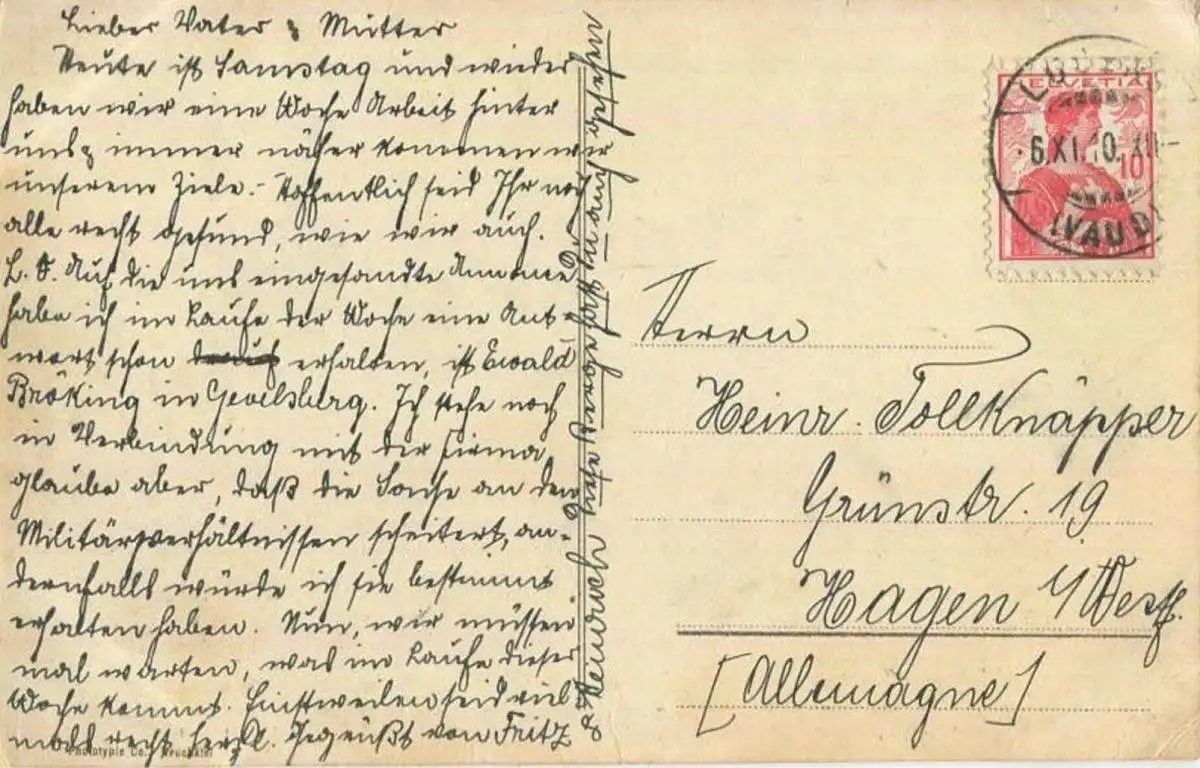 Lieber Vater & Mutter
Heute ist Samstag und wieder
haben wir eine Woche Arbeit hinter
uns & immer näher kommen wir
unserem Ziele. – Hoffentlich seid Ihr noch
alle recht gesund, wie wir auch.
L. V. Auf die uns eingesandte Annonce
habe ich im Laufe der Woche eine Ant-
wort schon erhalten, ist Ewald
Bröking in Gevelsberg. Ich stehe noch
in Verbindung mit der Firma,
glaube aber, daß die Sache an den
Militärsverhältnissen scheitert, an-
dernfalls würde ich sie bestimmt
erhalten haben. Nun, wir müssen
mal warten, was im Laufe dieser
Woche kommt. Einstweilen seid viel-
mals recht herzl. gegrüßt von Fritz
& Heinrich
hohe Berge hätte auch gesehen
HELVETIA
10
6.XI.10. XII-
(VAUD)
Herrn
Heinr. Tollknäpper
Grünstr. 19
Hagen i/Westf.
[Allemagne]
Phototypie Co., Neuchâtel